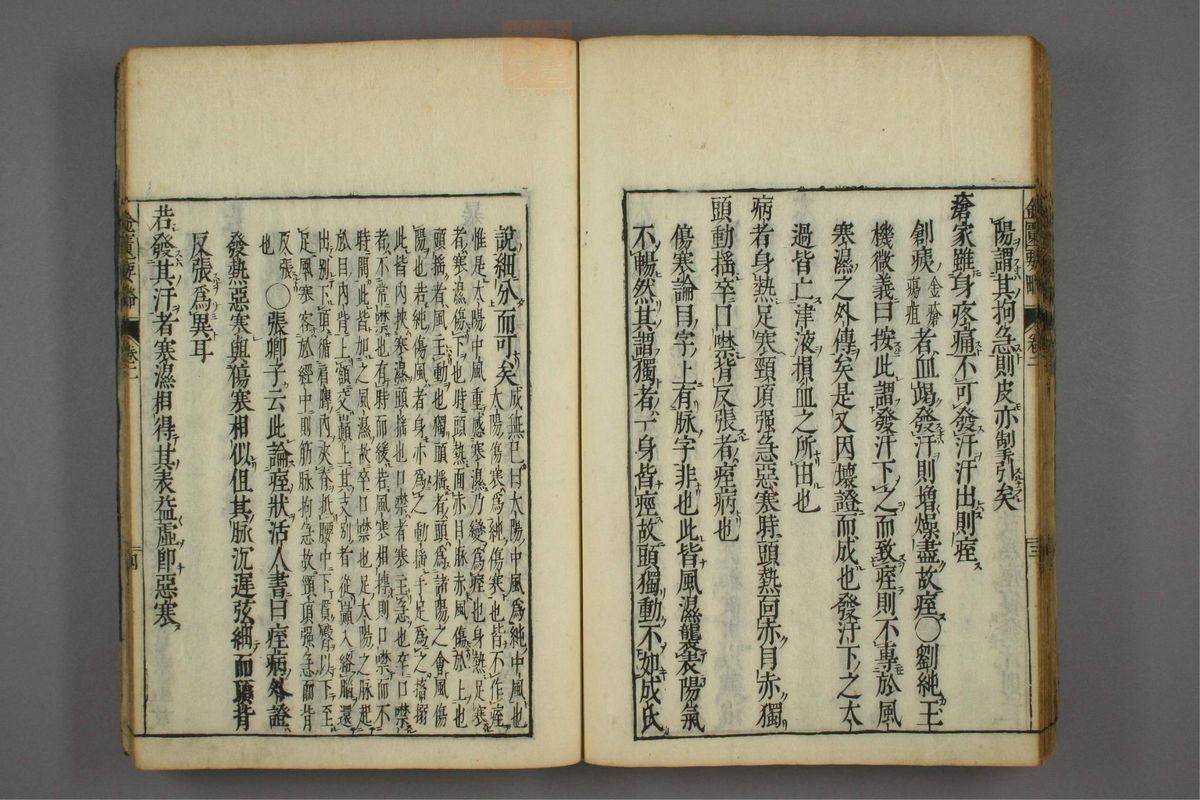 陽謂其拘急則皮亦掣引矣
瘡家雖身疼痛不可發汗汗出則痙
創痍金瘡瘍疽者血竭發汗則增燥盡故痙〇劉純玉
機微義曰按此謂發汗下之而致痙則不專於風
寒濕之外傳矣是又因壞證而成也發汗下之太
過皆亡津液損血之所由也
病者身熱足寒頸項强急惡寒時頭熱面赤目赤獨
頭動搖卒口噤背反張者痙病也
傷寒論目字上有脉字非也此皆風濕襲表陽氣
不暢然其謂獨者一身皆痙故頭獨動不如成氏
說細分而可矣成無已曰太陽中風爲純中風也太陽傷寒爲純傷寒也皆不作痙
惟是太陽中風重感寒濕乃變爲痙也身熱足寒
者寒濕傷下也時頭熱面赤目脉赤風傷於上也
頭搖者風主動也獨頭搖者頭爲諸陽之會風傷
陽也若純傷風者身亦爲之動搖手足爲之搐搦
此皆內挾寒濕頭搖也口噤者寒主急也卒口噤
者不常噤也有時而緩若風寒相摶則口噤而不
時開此皆加之風濕故卒口噤也足太陽之脉起
於目內眥上額交巔上其支別者從巔入絡腦還
出別下項循肩膊內夾脊抵腰中下貫臀以下至
足風寒客於經中則筋脉拘急故頸項强急而背
反張也〇張卿子云此論痙狀活人書曰痙病外證
發熱惡寒與傷寒相似但其脉沉遲弦細而項背
反張爲異耳
若發其汗者寒濕相得其表益虛卽惡寒
金匱要略
卷二
三
金匱要略
卷二
四